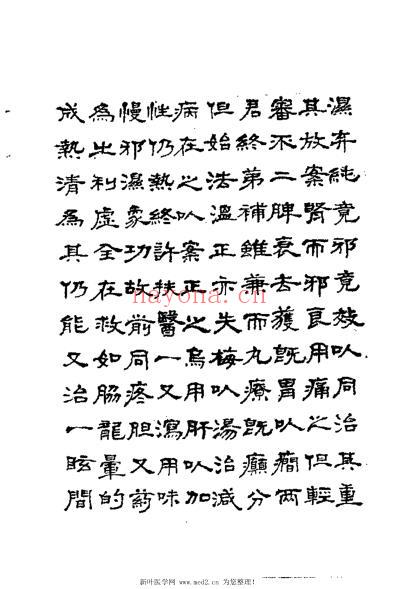 成為慢性病但君審其濕
熱之邪仍在始終不放弃
清利濕熱之法第二案純
為虛象終以溫補脾腎竟
其全功許案正雖衰而邪
仍在故扶正亦兼去邪竟
能救前醫之失而獲良效
又如同一烏梅丸既用以
治胁疼又用以療胃痛同
一龍胆瀉肝湯既以之治
眩暈又用以治癲癇但其
間的葯味加減分兩輕重
nayona.cn
新叶医学网 www.med2.cn 为您整理!